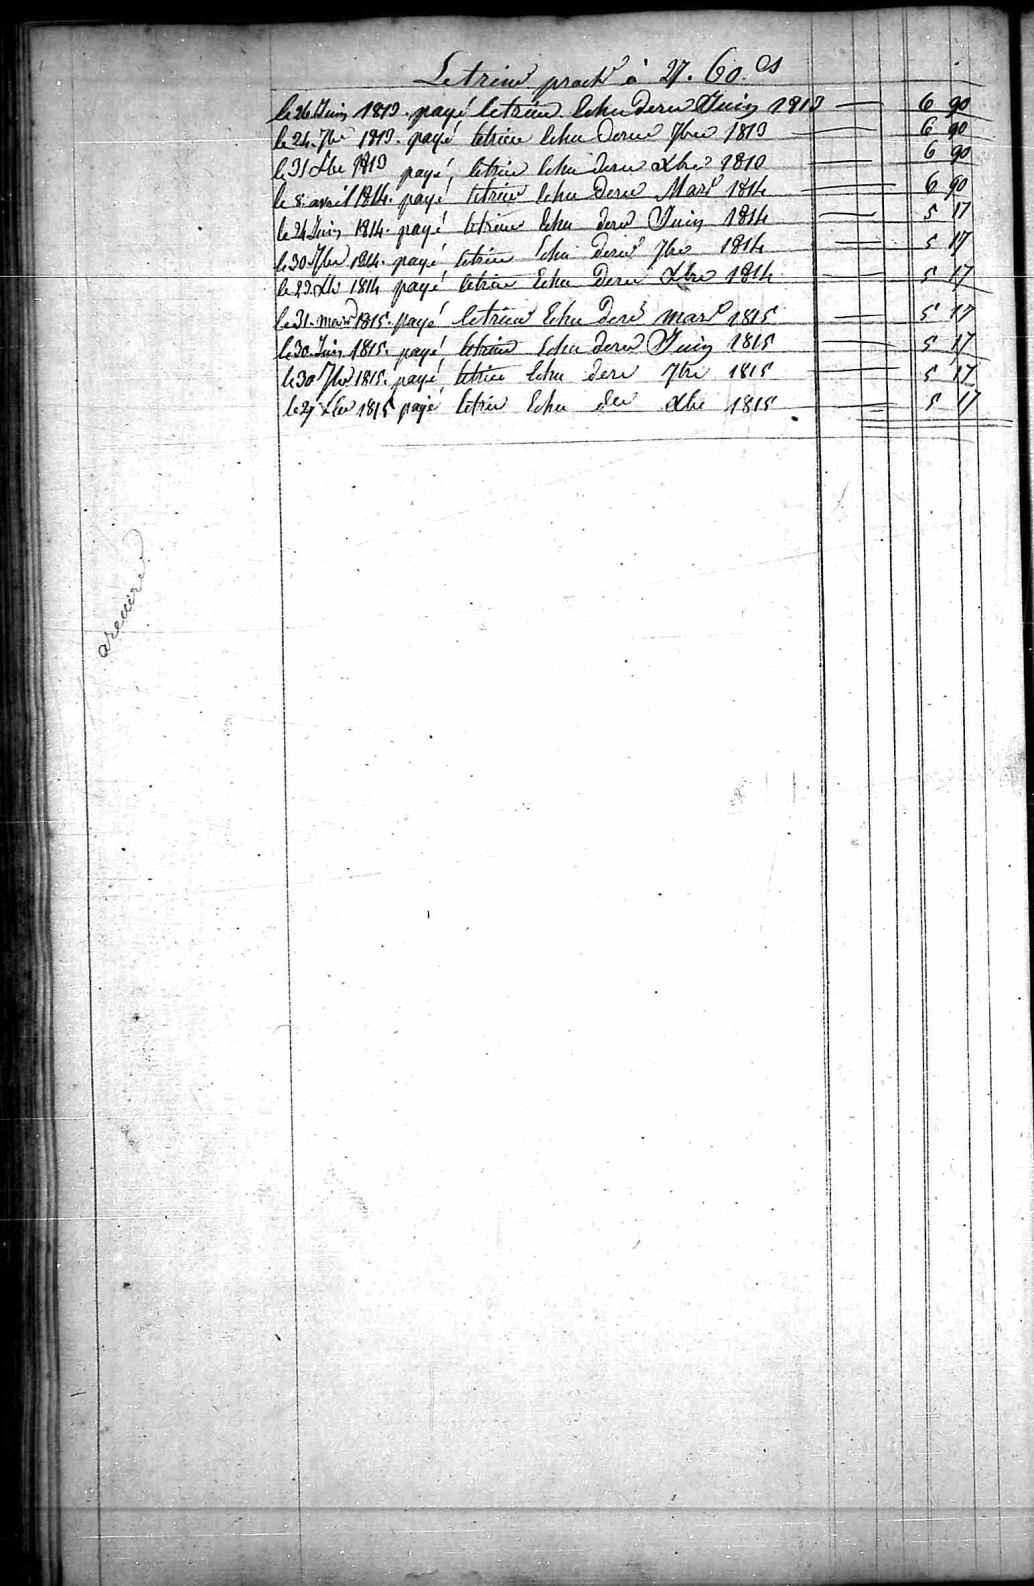 Le trim pred à 27. 60. cs
le 26 Juin 1813. payé le trim Echu der Juin 1813 — 6 90
le 24. 7bre 1813. payé le trim Echu der 7bre 1813 — 6 90
le 31 Xbre 1813 payé le trim Echu der Xbre 1813 — 6 90
le 8 avril 1814. payé le trim Echu der Mars 1814 — 6 90
le 24 Juin 1814. payé le trim Echu der Juin 1814 — 5 17
le 30 7bre 1814. payé le trim Echu der 7bre 1814 — 5 17
le 22 Xbre 1814 payé le trim Echu der Xbre 1814 — 5 17
le 31. mars 1815. payé le trim Echu der mars 1815 — 5 17
le 30. Juin 1815. payé le trim Echu der Juin 1815 — 5 17
le 30 7bre 1815. payé le trim Echu der 7bre 1815 — 5 17
le 29 Xbre 1815 payé le trim Echu der Xbre 1815 — 5 17